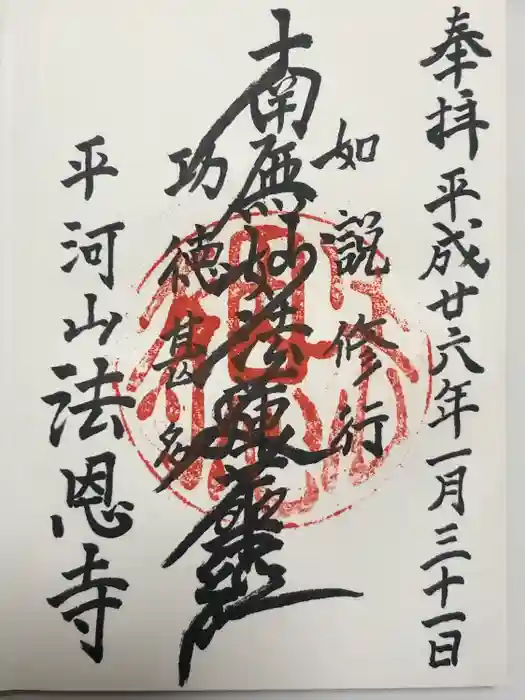 奉拝 平成廿六年一月三十一日
如説修行
南無妙法蓮華經
功徳甚多
平河山法恩寺